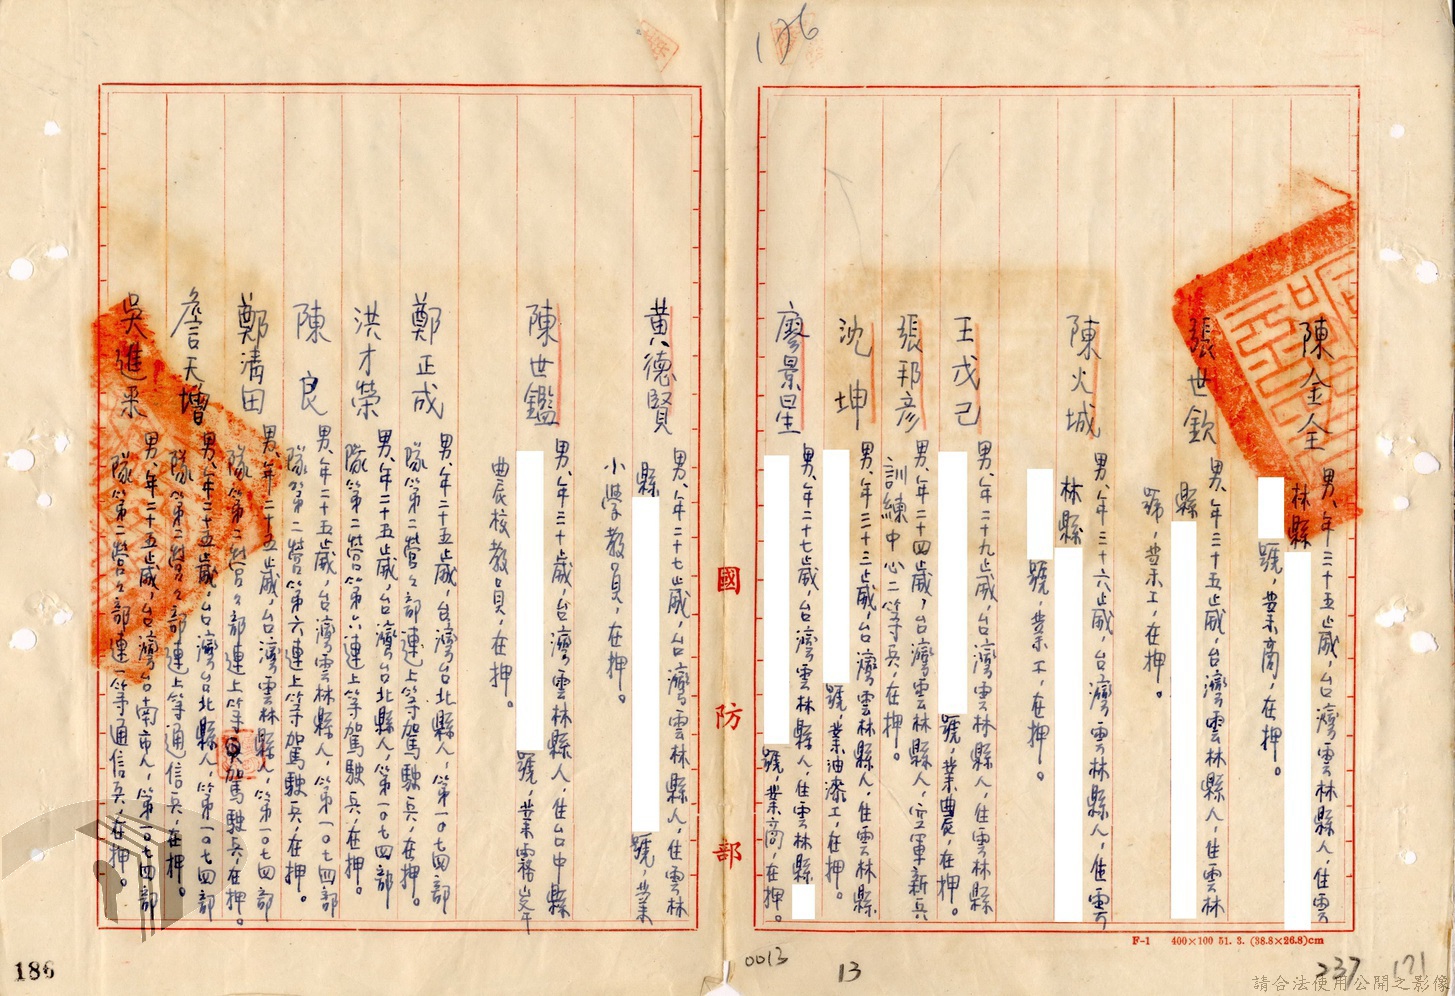 176
陳金全 男、年三十五歲，台灣雲林縣人，住雲
林縣 號，業商，在押。
張世欽 男、年三十五歲，台灣雲林縣人，住雲林
縣 號，業木工，在押。
陳火城 男、年三十六歲，台灣雲林縣人，住雲
林縣 號，業工，在押。
王戊己 男、年二十九歲，台灣雲林縣人，住雲林縣
號，業農，在押。
張邦彥 男、年二十四歲，台灣雲林縣人，空軍新兵
訓練中心二等兵，在押。
沈坤 男、年三十三歲，台灣雲林縣人，住雲林縣
號，業油漆工，在押。
廖景星 男、年二十七歲，台灣雲林縣人，住雲林縣
號，業商，在押。
國防部
黃德賢 男、年二十七歲，台灣雲林縣人，住雲林
縣 號，業
小學教員，在押。
陳世鑑 男、年三十歲，台灣雲林縣人，住台中縣
號，業霧峯
農校教員，在押。
鄭正成 男、年二十五歲，台灣台北縣人，第一0七四部
隊第二營々部連上等駕駛兵，在押。
洪才榮 男、年二十五歲，台灣台北縣人，第一0七四部
隊第二營第六連上等駕駛兵，在押。
陳良 男、年二十五歲，台灣雲林縣人，第一0七四部
隊第二營第六連上等駕駛兵，在押。
鄭清田 男、年二十五歲，台灣雲林縣人，第一0七四部
隊第二營々部連上等駕駛兵，在押。
詹天增 男、年二十五歲，台灣台北縣人，第一0七四部
隊第二營々部連上等通信兵，在押。
吳進來 男、年二十五歲，台灣台南市人，第一0七四部
隊第二營々部連一等通信兵，在押。
F-1 400×100 51. 3. (38.8×26.8)cm
0013
13
237
171
186
請合法使用公開之影像